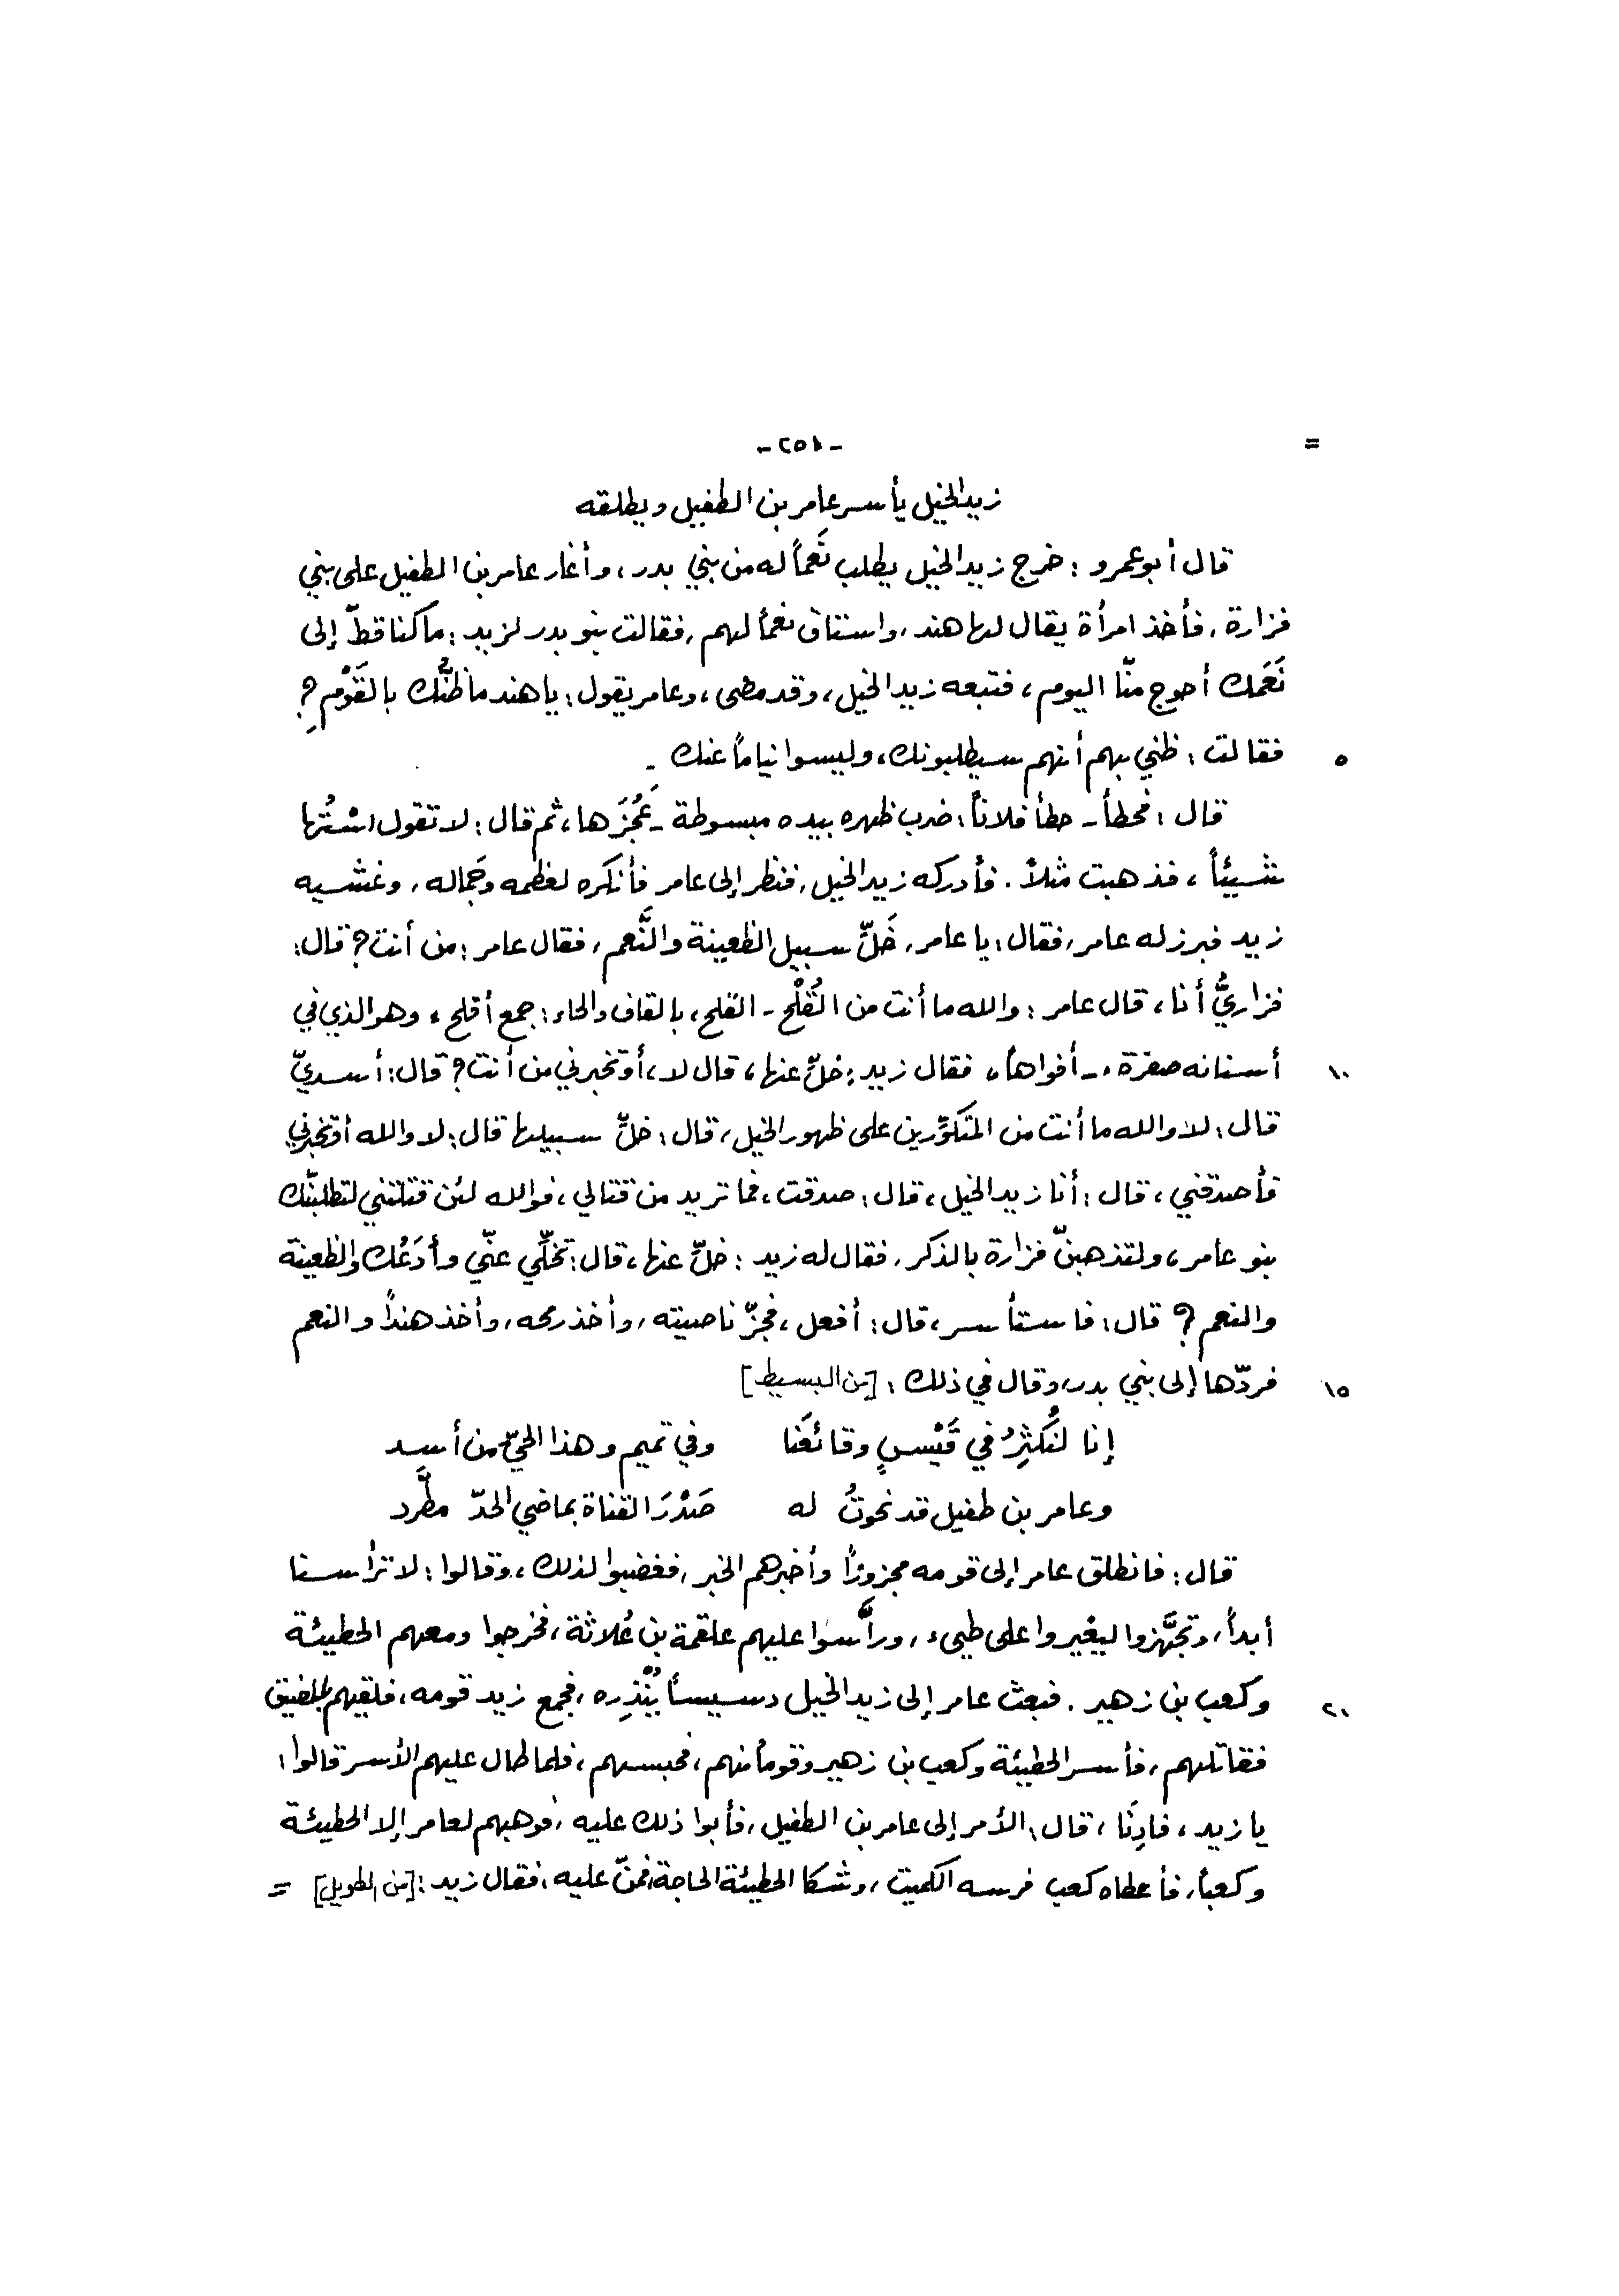 =
-٢٥١-
زيد الخيل يأسر عامر بن الطفيل ويطلقه
قال أبو عمرو : خرج زيد الخيل يطلب نَعَماً له من بني بدر، وأغار عامر بن الطفيل على بني
فزارة، فأخذ امرأة يقال لها هند، واستاق نعماً لهم، فقالت بنو بدر لزيد : ما كنا قطّ إلى
نَعَمك أحوج منّا اليوم، فتبعه زيد الخيل، وقد مضى، وعامر يقول : يا هند ما ظنُّك بالقَوْمِ؟
٥ فقالت : ظني بهم أنهم سيطلبونك، وليسوا نياماً عنك .
قال : فحطأ - حطأ فلاناً : ضرب ظهره بيده مبسوطة - عَجُزَها، ثم قال : لا تقول اسْتُها
شيئاً، فذهبت مثلاً. فأدركه زيد الخيل، فنظر إلى عامر فأنكره لعظمه وجَماله، وغشيه
زيد فبرز له عامر، فقال : يا عامر، خَلِّ سبيل الظعينة والنَّعم، فقال عامر : من أنت؟ قال :
فزاريٌّ أنا، قال عامر : والله ما أنت من القُلْح - القلح، بالقاف والحاء : جمع أقلح، وهو الذي في
١٠ أسنانه صفرة، - أفواهاً، فقال زيد : خلِّ عنها، قال لا، أو تخبرني من أنت؟ قال : أسديّ
قال : لا والله ما أنت من المتكوِّرين على ظهور الخيل، قال : خلِّ سبيلها قال : لا والله أو تخبرني
فأصدقني، قال : أنا زيد الخيل، قال : صدقت، فما تريد من قتالي، فوالله لئن قتلتني لتطلبنّك
بنو عامر، ولتذهبنّ فزارة بالذكر، فقال له زيد : خلِّ عنها، قال : تخلِّي عنّي وأدَعُك والظعينة
والنعم؟ قال : فاستأسر، قال : أفعل، فجزّ ناصيته، وأخذ رمحه، وأخذ هنداً والنعم
١٥ فردّها إلى بني بدر، وقال في ذلك : [من البسيط]
إنا لنُكثِرُ في قَيْسٍ وقائعَنا وفي تميم وهذا الحيّ من أسد
وعامر بن طفيل قد نحوتُ له صَدْرَ القناة بماضي الحدّ مطَّرد
قال : فانطلق عامر إلى قومه مجزوزاً وأخبرهم الخبر، فغضبوا لذلك، وقالوا : لا ترأسنا
أبداً، وتجهَّزوا ليغيروا على طيىء، ورأَّسوا عليهم علقمة بن عُلاثة، فخرجوا ومعهم الحطيئة
٢٠ وكعب بن زهير. فبعث عامر إلى زيد الخيل دسيساً يُنْذِره، فجمع زيد قومه، فلقيهم بالمضيق
فقاتلهم، فأسر الحطيئة وكعب بن زهير وقوماً منهم، فحبسهم، فلما طال عليهم الأسر قالوا :
يا زيد، فادِنَا، قال : الأمر إلى عامر بن الطفيل، فأبوا ذلك عليه، فوهبهم لعامر إلا الحطيئة
وكعباً، فأعطاه كعب فرسه الكميت، وشكا الحطيئة الحاجة، فمنّ عليه، فقال زيد : [من الطويل] =